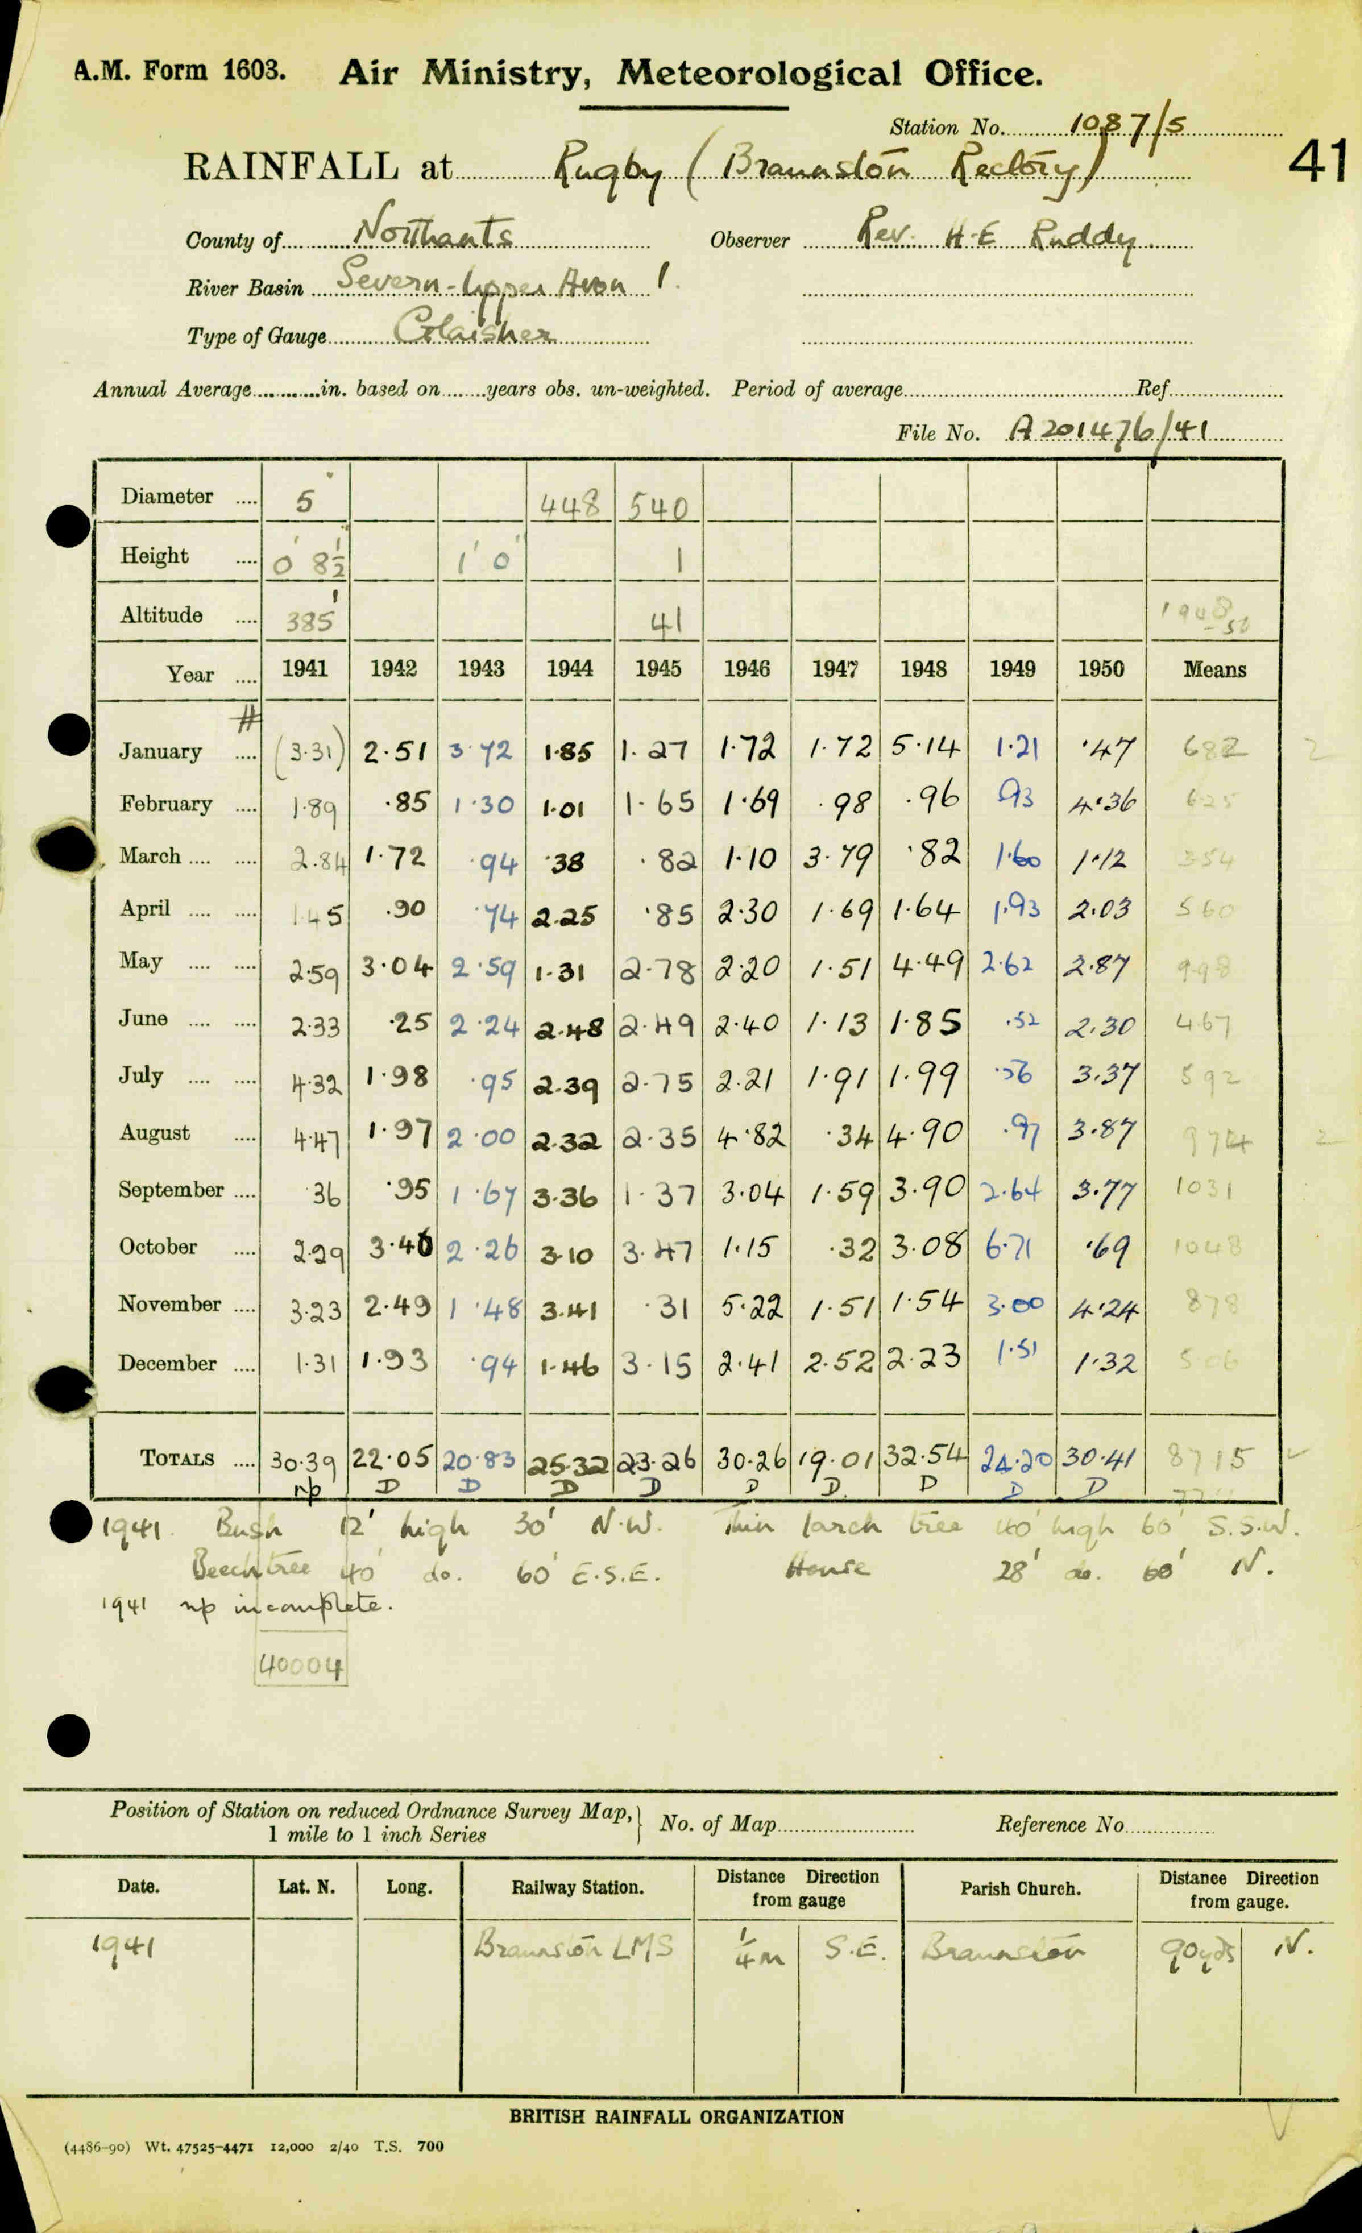 A.M. Form 1603. Air Ministry, Meteorological Office.
Station No. 1087/5
41
RAINFALL at Rugby (Braunston Rectory)
County of Northants Observer Rev. H.E Ruddy
River Basin Severn-Upper Avon 1
Type of Gauge Glaisher
Annual Average in. based on years obs. un-weighted. Period of average Ref
File No. A201476/41
Diameter 5" 448 540
Height 0' 8½" 1' 0" 1
Altitude 385' 41 1948-50
Year 1941 1942 1943 1944 1945 1946 1947 1948 1949 1950 Means
#
January (3.31) 2.51 3.72 1.85 1.27 1.72 1.72 5.14 1.21 .47 682 2
February 1.89 .85 1.30 1.01 1.65 1.69 .98 .96 .93 4.36 625
March 2.84 1.72 .94 .38 .82 1.10 3.79 .82 1.60 1.12 354
April 1.45 .90 .74 2.25 .85 2.30 1.69 1.64 1.93 2.03 560
May 2.59 3.04 2.59 1.31 2.78 2.20 1.51 4.49 2.62 2.87 998
June 2.33 .25 2.24 2.48 2.49 2.40 1.13 1.85 .52 2.30 467
July 4.32 1.98 .95 2.39 2.75 2.21 1.91 1.99 .56 3.37 592
August 4.47 1.97 2.00 2.32 2.35 4.82 .34 4.90 .97 3.87 974 2
September .36 .95 1.67 3.36 1.37 3.04 1.59 3.90 2.64 3.77 1031
October 2.29 3.46 2.26 3.10 3.47 1.15 .32 3.08 6.71 .69 1048
November 3.23 2.49 1.48 3.41 .31 5.22 1.51 1.54 3.00 4.24 878
December 1.31 1.93 .94 1.46 3.15 2.41 2.52 2.23 1.51 1.32 506
TOTALS 30.39 22.05 20.83 25.32 23.26 30.26 19.01 32.54 24.20 30.41 8715
np D D D D D D D D D
1941 Bush 12' high 30' N.W. Thin larch tree 40' high 60' S.S.W.
Beech tree 40' do. 60' E.S.E. House 28' do. 60' N.
1941 np incomplete.
40004
Position of Station on reduced Ordnance Survey Map, 1 mile to 1 inch Series } No. of Map Reference No
Date. Lat. N. Long. Railway Station. Distance Direction from gauge Parish Church. Distance Direction from gauge.
1941 Braunston LMS ¼m S.E. Braunston 90yds N.
BRITISH RAINFALL ORGANIZATION
(4486-90) Wt. 47525-4471 12,000 2/40 T.S. 700